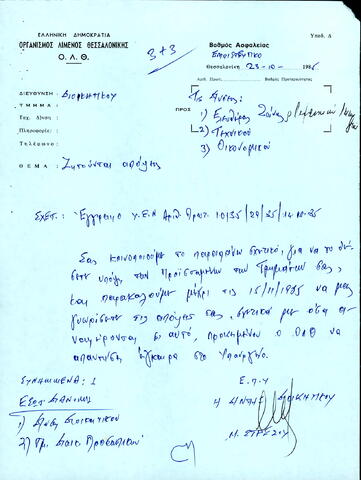 ΕΛΛΗΝΙΚΗ ΔΗΜΟΚΡΑΤΙΑ
ΟΡΓΑΝΙΣΜΟΣ ΛΙΜΕΝΟΣ ΘΕΣΣΑΛΟΝΙΚΗΣ
Ο. Λ. Θ.
3+3
Υποδ. Δ
Βαθμός Ασφαλείας
Εμπιστευτικό
Θεσσαλονίκη 23-10- 1985
Αριθ. Πρωτ. Βαθμός Προτεραιότητας
ΔΙΕΥΘΥΝΣΗ : Διοικητικού
ΤΜΗΜΑ :
Ταχ. Δ/νση :
Πληροφορίες :
Τηλέφωνο :
ΘΕΜΑ : Ζητούνται απόψεις
ΠΡΟΣ
Τις Δ/νσεις:
1) Ελευθέρας Ζώνης
2) Τεχνικού
3) Οικονομικού
ΣΧΕΤ: Έγγραφο Υ.Ε.Ν Αριθ. Πρωτ.
Σας κοινοποιούμε το παραπάνω σχετικό, για να το θέ-
σετε υπόψη των Προϊσταμένων των Τμημάτων σας,
και παρακαλούμε μέχρι τις 15/11/1985 να μας
γνωρίσετε τις απόψεις σας, σχετικά με όσα α-
ναφέρονται σ' αυτό, προκειμένου ο ΟΛΘ να
απαντήσει έγκαιρα στο Υπουργείο.
ΣΥΝΗΜΜΕΝΑ: 1
ΕΣΩΤ. ΔΙΑΝΟΜΗ
1) Δ/νση Διοικητικού
2) Τμ. Διοικ. Προσωπικού
Ε.Π.Υ
Η Δ/ΝΤΗΣ ΔΙΟΙΚΗΤΙΚΟΥ